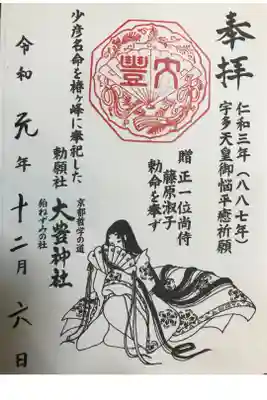 奉拝
仁和三年（八八七年）
宇多天皇御悩平癒祈願
大豊
贈 正一位尚侍
藤原淑子
勅命を奉ず
少彦名命を椿ヶ峰に奉祀した
勅願社
京都哲学の道
大豊神社
狛ねずみの社
令和元年十二月六日